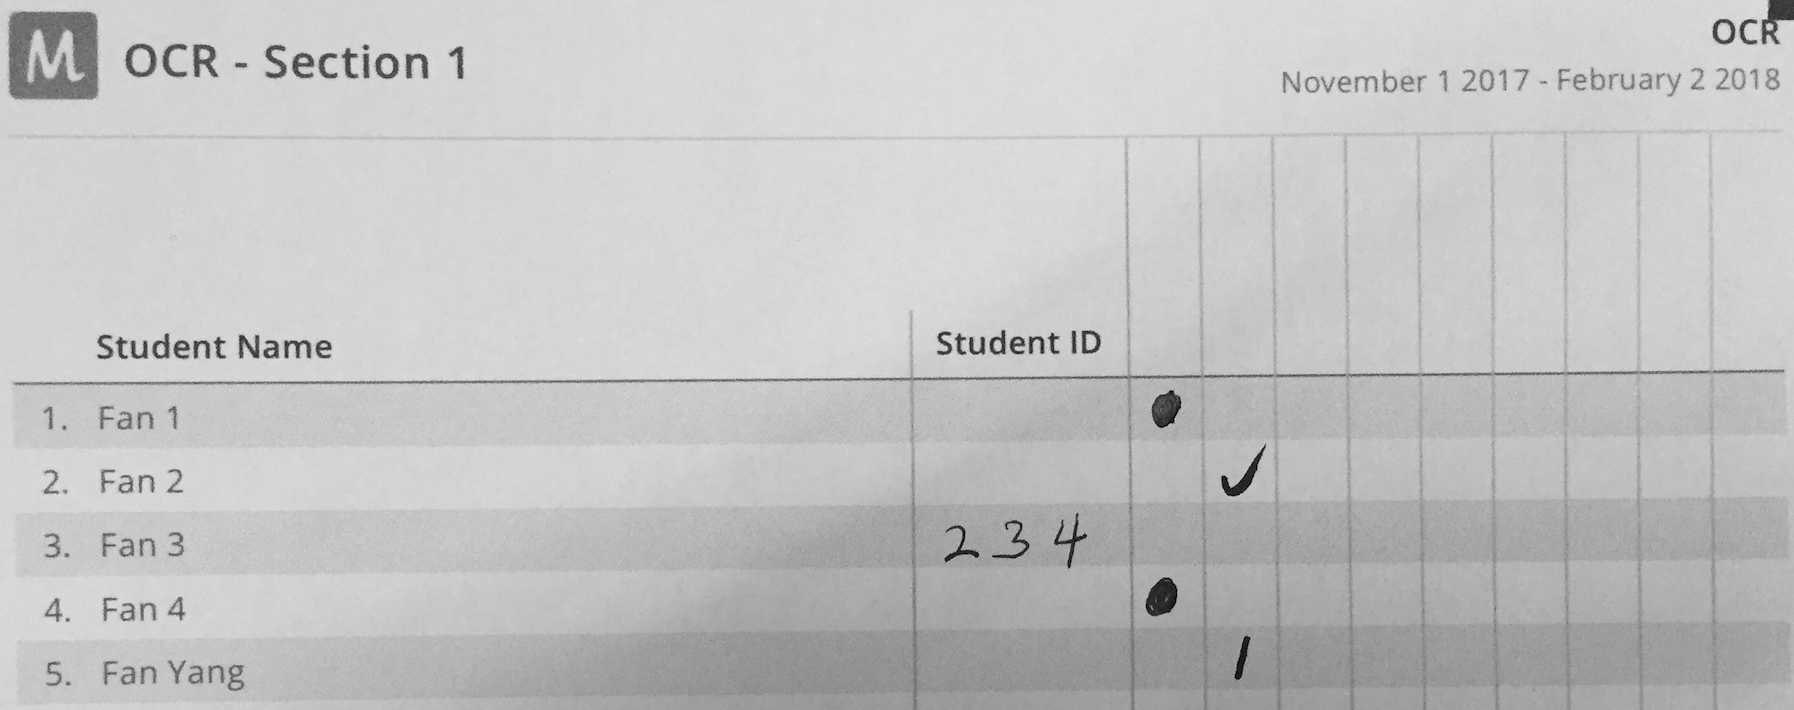 M OCR - Section 1
OCR
November 1 2017 - February 2 2018
Student Name Student ID
1. Fan 1 ●
2. Fan 2 ✓
3. Fan 3 2 3 4
4. Fan 4 ●
5. Fan Yang /